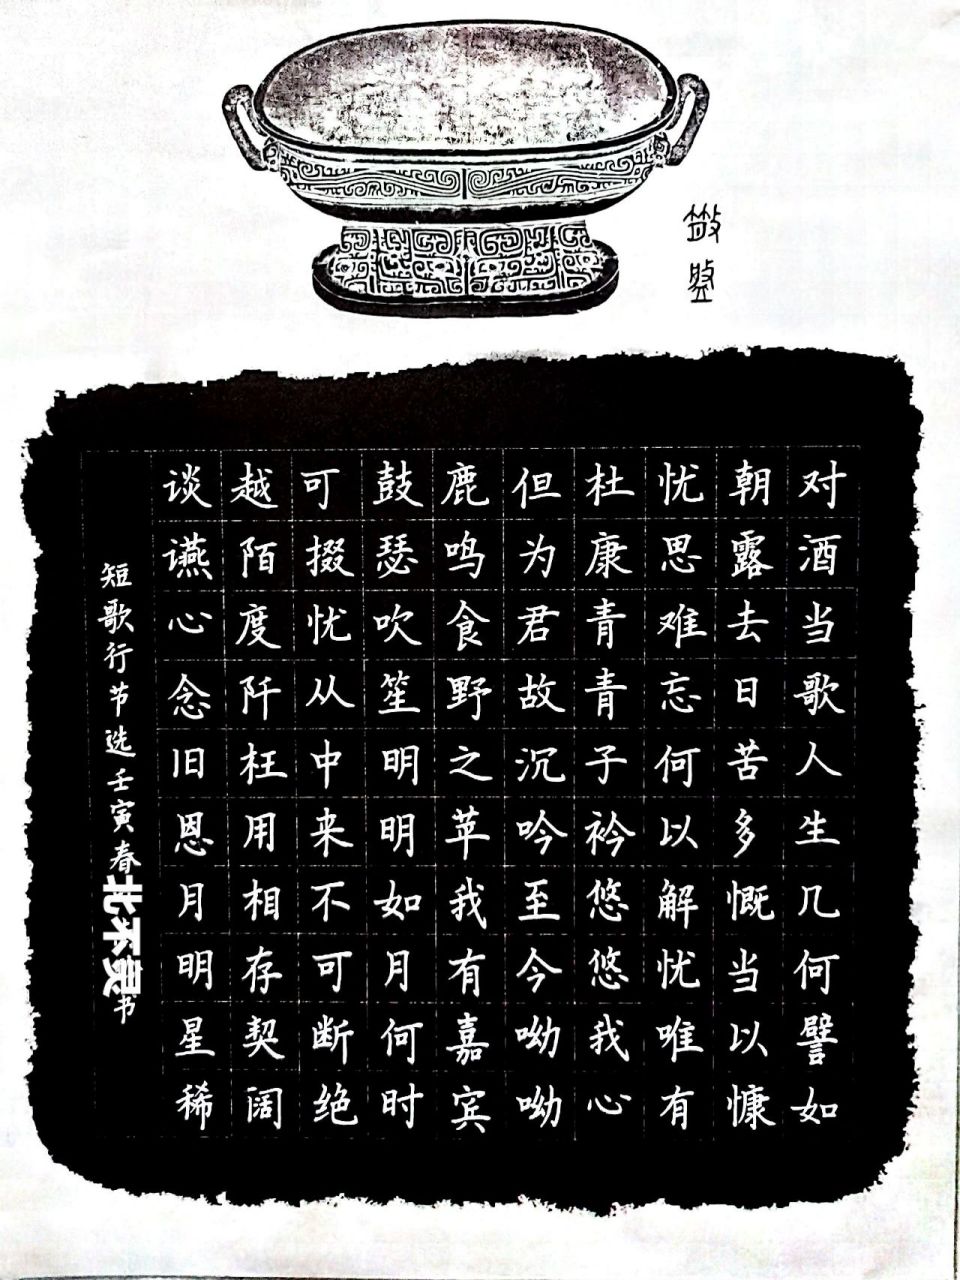 对酒当歌人生几何譬如
朝露去日苦多慨当以慷
忧思难忘何以解忧唯有
杜康青青子衿悠悠我心
但为君故沉吟至今呦呦
鹿鸣食野之苹我有嘉宾
鼓瑟吹笙明明如月何时
可掇忧从中来不可断绝
越陌度阡枉用相存契阔
谈䜩心念旧恩月明星稀
短歌行节选壬寅春北不灵书